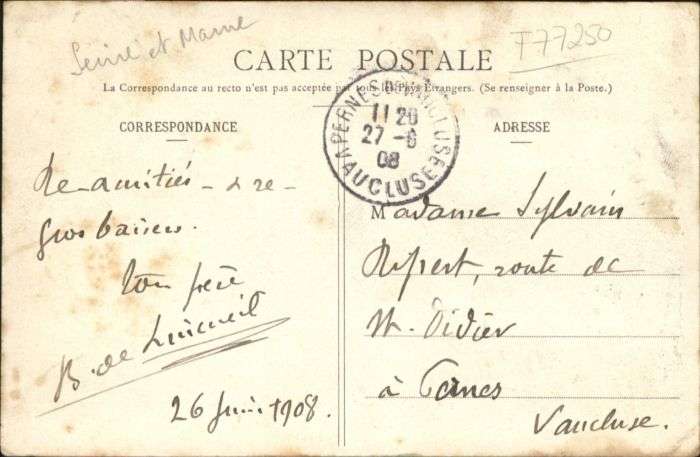 Seine et Marne
F77250
CARTE POSTALE
La Correspondance au recto n'est pas acceptée par tous les Pays Étrangers. (Se renseigner à la Poste.)
CORRESPONDANCE
ADRESSE
PERNES DE VAUCLUSE
11 20
27 - 6
08
VAUCLUSE
Re-amitiés - & re-
gros baisers.
ton père
B. de
26 juin 1908.
Madame Sylvain
route de
St. Didier
à Pernes
Vaucluse.